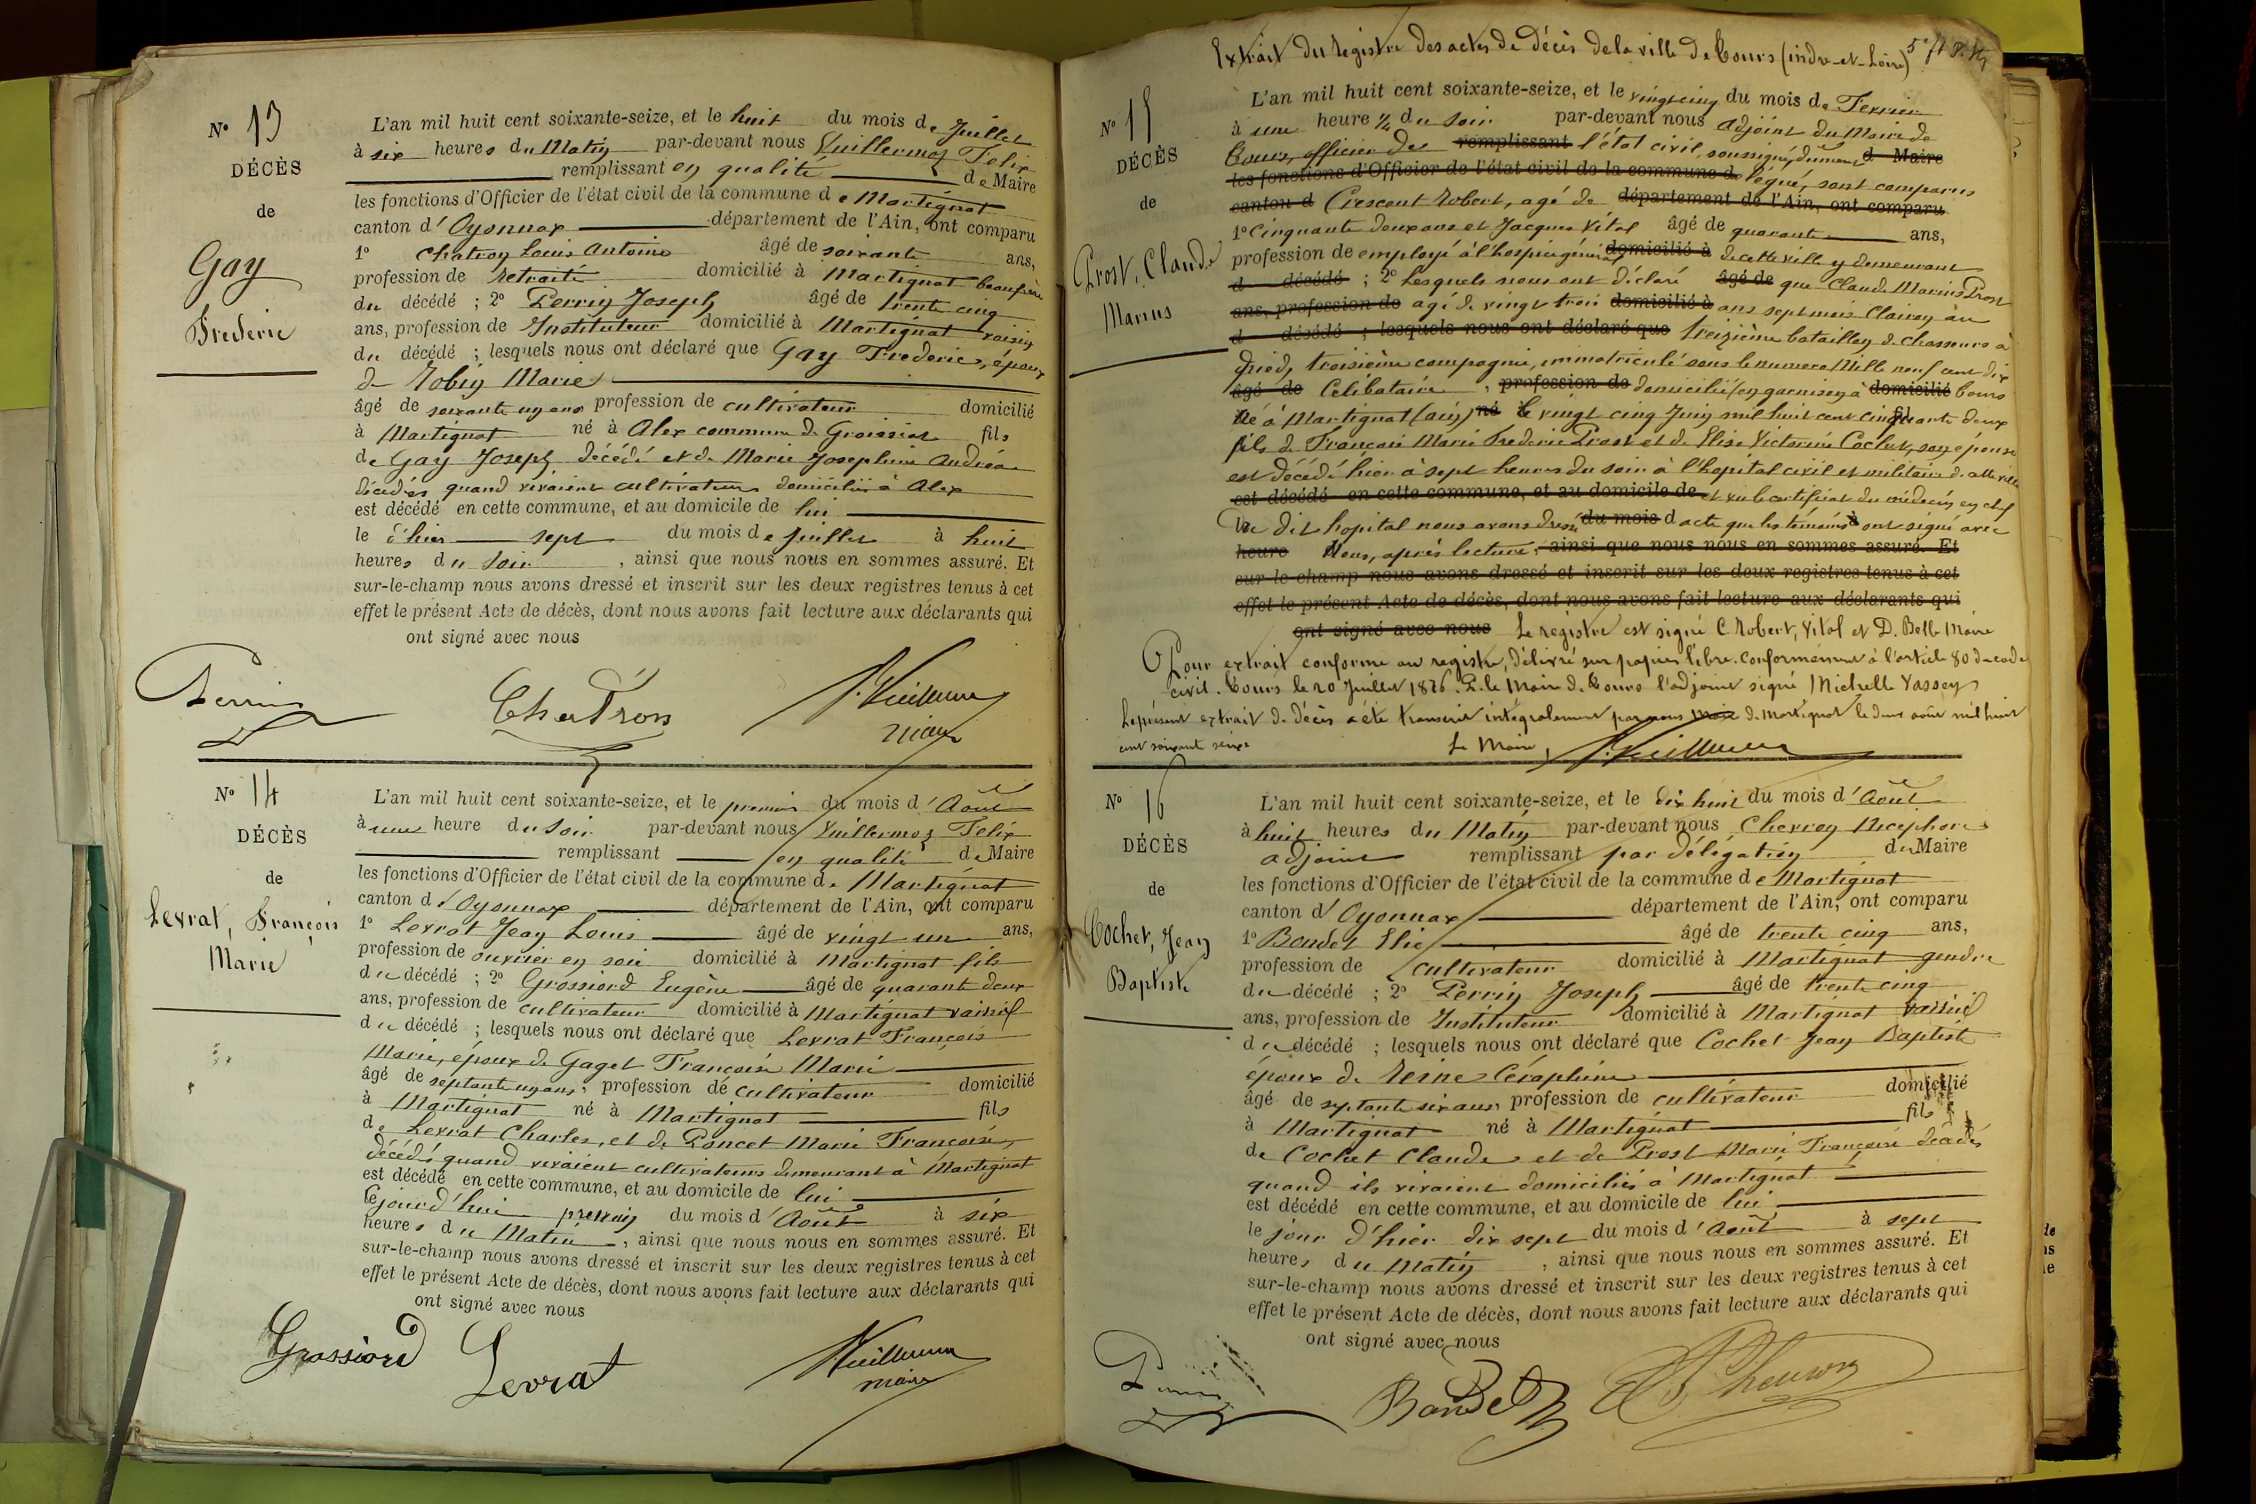 N° 13
DÉCÈS
de
Gay
Frederic
L'an mil huit cent soixante-seize, et le huit du mois de Juillet
à six heures du Matin par-devant nous Vuillermoz Felix
remplissant en qualité de Maire
les fonctions d'Officier de l'état civil de la commune de Martignat
canton d'Oyonnax département de l'Ain, ont comparu
1° Chatron Louis Antoine âgé de soixante ans,
profession de retraité domicilié à Martignat beaufrère
du décédé ; 2° Perrin Joseph âgé de trente cinq
ans, profession de Instituteur domicilié à Martignat voisin
du décédé ; lesquels nous ont déclaré que Gay Frederic, époux
de Robin Marie
âgé de soixante un ans profession de cultivateur domicilié
à Martignat né à Alex commune de Groissiat fils
de Gay Joseph décédé et de Marie Josephine Andréa
décédés quand vivaient cultivateurs domiciliés à Alex
est décédé en cette commune, et au domicile de lui
le d'hier sept du mois de Juillet à huit
heures du Soir, ainsi que nous nous en sommes assuré. Et
sur-le-champ nous avons dressé et inscrit sur les deux registres tenus à cet
effet le présent Acte de décès, dont nous avons fait lecture aux déclarants qui
ont signé avec nous
Perrin Chatron Vuillermoz
maire
N° 14
DÉCÈS
de
Levrat, François
Marie
L'an mil huit cent soixante-seize, et le premier du mois d'Août
à une heure du Soir par-devant nous Vuillermoz Felix
remplissant en qualité de Maire
les fonctions d'Officier de l'état civil de la commune de Martignat
canton d'Oyonnax département de l'Ain, ont comparu
1° Levrat Jean Louis âgé de vingt un ans,
profession de ouvrier en soie domicilié à Martignat fils
du décédé ; 2° Grossiord Eugène âgé de quarant deux
ans, profession de cultivateur domicilié à Martignat voisin
du décédé ; lesquels nous ont déclaré que Levrat François
Marie, époux de Gaget Françoise Marie
âgé de septante un ans, profession de cultivateur domicilié
à Martignat né à Martignat fils
de Levrat Charles, et de Poncet Marie Françoise,
décédés quand vivaient cultivateurs demeurant à Martignat
est décédé en cette commune, et au domicile de lui
le jourd'hui premier du mois d'Août à six
heures du Matin, ainsi que nous nous en sommes assuré. Et
sur-le-champ nous avons dressé et inscrit sur les deux registres tenus à cet
effet le présent Acte de décès, dont nous avons fait lecture aux déclarants qui
ont signé avec nous
Grossiord Levrat Vuillermoz
maire
Extrait du registre des actes de décès de la ville de Tours (indre-et-Loire)
N° 15
DÉCÈS
de
Prost, Claude
Marius
L'an mil huit cent soixante-seize, et le vingt cinq du mois de Fevrier
à une heure 1/4 du Soir par-devant nous adjoint du Maire de
Tours, officier de remplissant l'état civil, soussigné, dûment d Maire
les fonctions d'Officier de l'état civil de la commune d légué, sont comparus
canton d Crescent Robert, agé de département de l'Ain, ont comparu
1° Cinquante deux ans et Jacques Vital âgé de quarante ans,
profession de employé à l'hospice général domicilié à de cette ville y demeurant
d décédé ; 2° Lesquels nous ont déclaré âgé de que Claude Marius Prost
ans, profession de agé de vingt trois domicilié à ans sept mois Clairon au
d décédé ; lesquels nous ont déclaré que treizième bataillon de chasseurs à
pied, troisième compagnie, immatriculé sous le numero Mille neuf cent dix
âgé de Célibataire, profession de domicilié (en garnison) à domicilié Tours
Né à Martignat (ain) né le vingt cinq Juin mil huit cent cinquante deux fil
fils de François Marie Frederic Prost et de Elise Victorine Cochet, son épouse
est décédé hier à sept heures du soir à l'hopital civil et militaire de cette ville
est décédé en cette commune, et au domicile de et vu le certificat du médecin en chef
du dit hopital nous avons dressé du mois d acte que les témoins à ont signé avec
heure Nous, après lecture, ainsi que nous nous en sommes assuré. Et
sur-le-champ nous avons dressé et inscrit sur les deux registres tenus à cet
effet le présent Acte de décès, dont nous avons fait lecture aux déclarants qui
ont signé avec nous Le registre est signé C Robert, Vital et D. Belle Maire
Pour extrait conforme au registre, délivré sur papier libre conformément à l'article 80 du code
civil. Tours le 20 Juillet 1876. P. le Maire de Tours l'adjoint signé Michelle Vassey
Le présent extrait de décès a été transcrit intégralement par nous Maire de Martignat le deux août mil huit
cent soixant seize
Le Maire, Vuillermoz
N° 16
DÉCÈS
de
Cochet, Jean
Baptiste
L'an mil huit cent soixante-seize, et le dix huit du mois d'Août
à huit heures du Matin par-devant nous Chevron Nicephore
adjoint remplissant par délégation du Maire
les fonctions d'Officier de l'état civil de la commune de Martignat
canton d'Oyonnax département de l'Ain, ont comparu
1° Bondet Elie âgé de trente cinq ans,
profession de cultivateur domicilié à Martignat gendre
du décédé ; 2° Perrin Joseph âgé de trente cinq
ans, profession de Instituteur domicilié à Martignat voisin
du décédé ; lesquels nous ont déclaré que Cochet Jean Baptiste
époux de Reine Céraphine
âgé de septante six ans profession de cultivateur domicilié
à Martignat né à Martignat fils
de Cochet Claude et de Prost Marie Françoise décédés
quand ils vivaient domiciliés à Martignat
est décédé en cette commune, et au domicile de lui
le jour d'hier dix sept du mois d'Août à sept
heures du Matin, ainsi que nous nous en sommes assuré. Et
sur-le-champ nous avons dressé et inscrit sur les deux registres tenus à cet
effet le présent Acte de décès, dont nous avons fait lecture aux déclarants qui
ont signé avec nous
Perrin Bondet Chevron